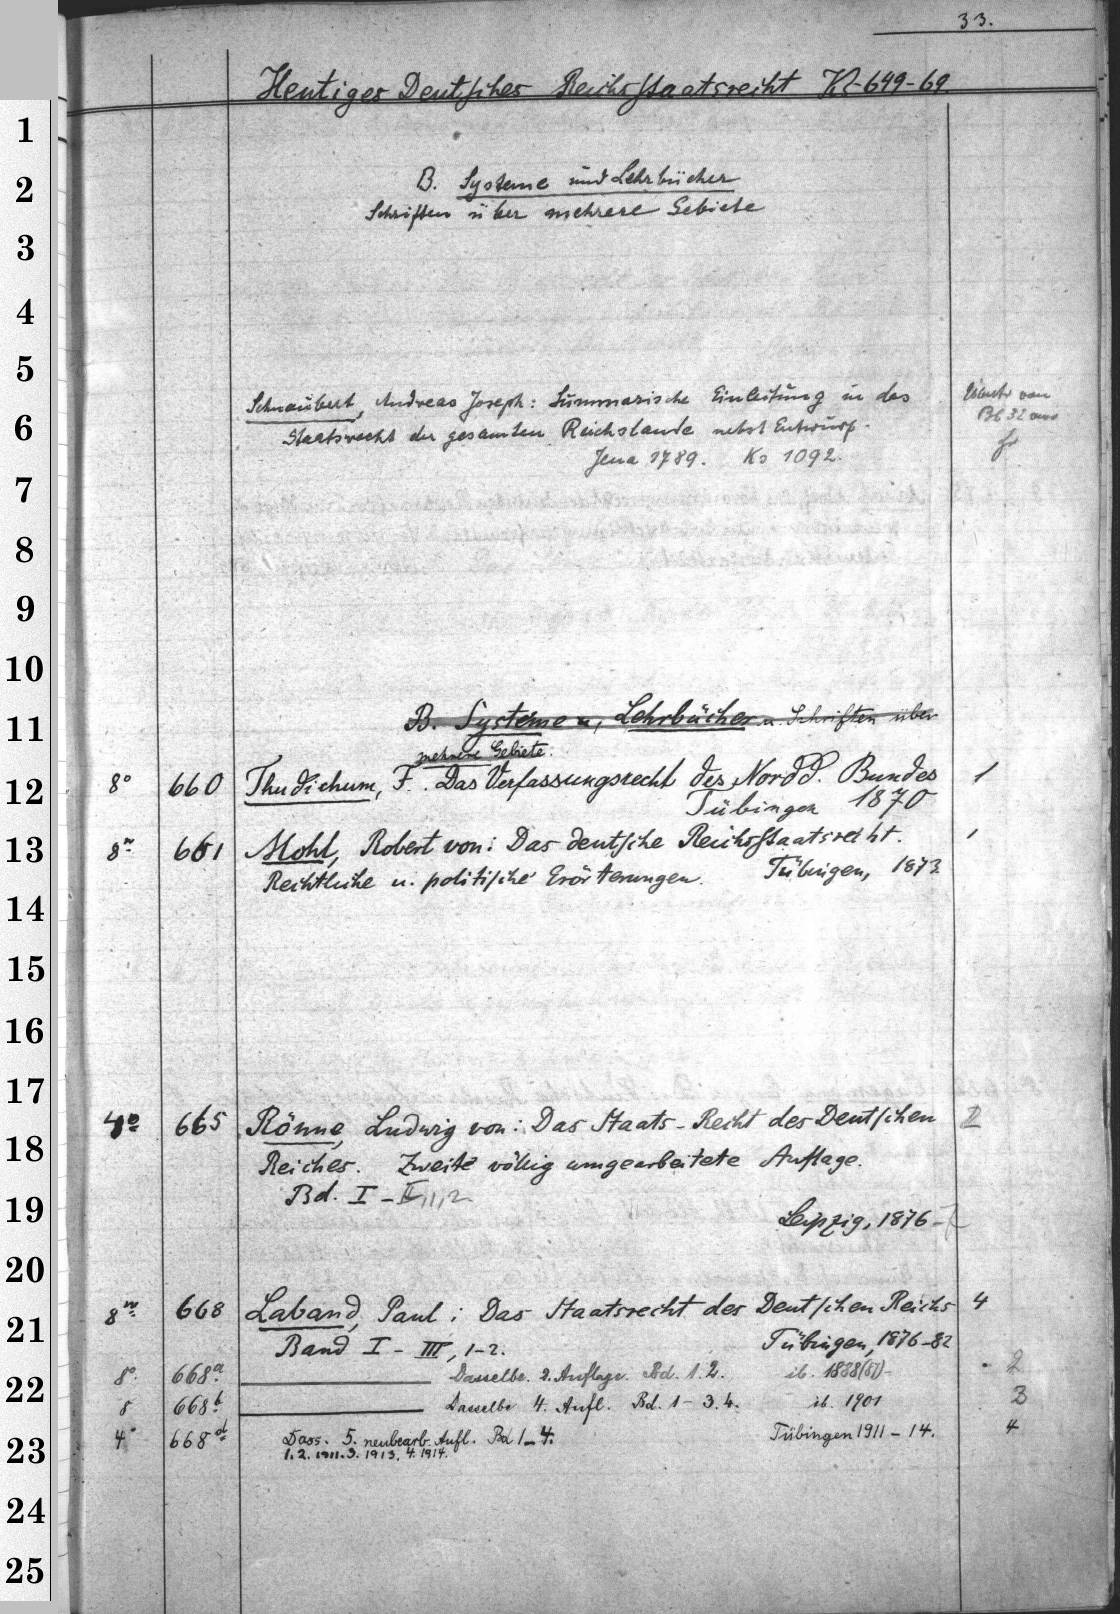 33.
Heutiges Deutsches Reichsstaatsrecht Kl-649-69
B. Systeme und Lehrbücher
Schriften über mehrere Gebiete
1
2
3
4
5
Schnaubert, Andreas Joseph: Summarische Einleitung in das
Bl 32
6
Staatsrecht der gesamten Reichslande nebst Entwurf.
Jena 1789. Ks 1092.
7
8
9
10
11
B. Systeme u. Lehrbücher u. Schriften über
mehrere Gebiete.
12
8° 660 Thudichum, F. Das Verfassungsrecht des Nordd. Bundes 1
Tübingen 1870
13
8° 661 Mohl, Robert von: Das deutsche Reichsstaatsrecht. 1
Rechtliche u. politische Erörterungen. Tübingen, 1873
14
15
16
17
4° 665 Rönne, Ludwig von: Das Staats-Recht des Deutschen 2
18
Reiches. Zweite völlig umgearbeitete Auflage.
Bd. I - II,1,2
19
Leipzig, 1876-
20
8° 668 Laband, Paul: Das Staatsrecht des Deutschen Reichs 4
21
Band I - III, 1-2. Tübingen, 1876-82
8° 668a Dasselbe. 2. Auflage. Bd. 1.2. ib. 1888 2
22
8 668b Dasselbe 4. Aufl. Bd. 1-3.4. ib. 1901 3
4° 668d Dass. 5. neubearb. Aufl. Bd 1-4. Tübingen 1911-14. 4
23
1.2.1911.3.1913.4.1914.
24
25